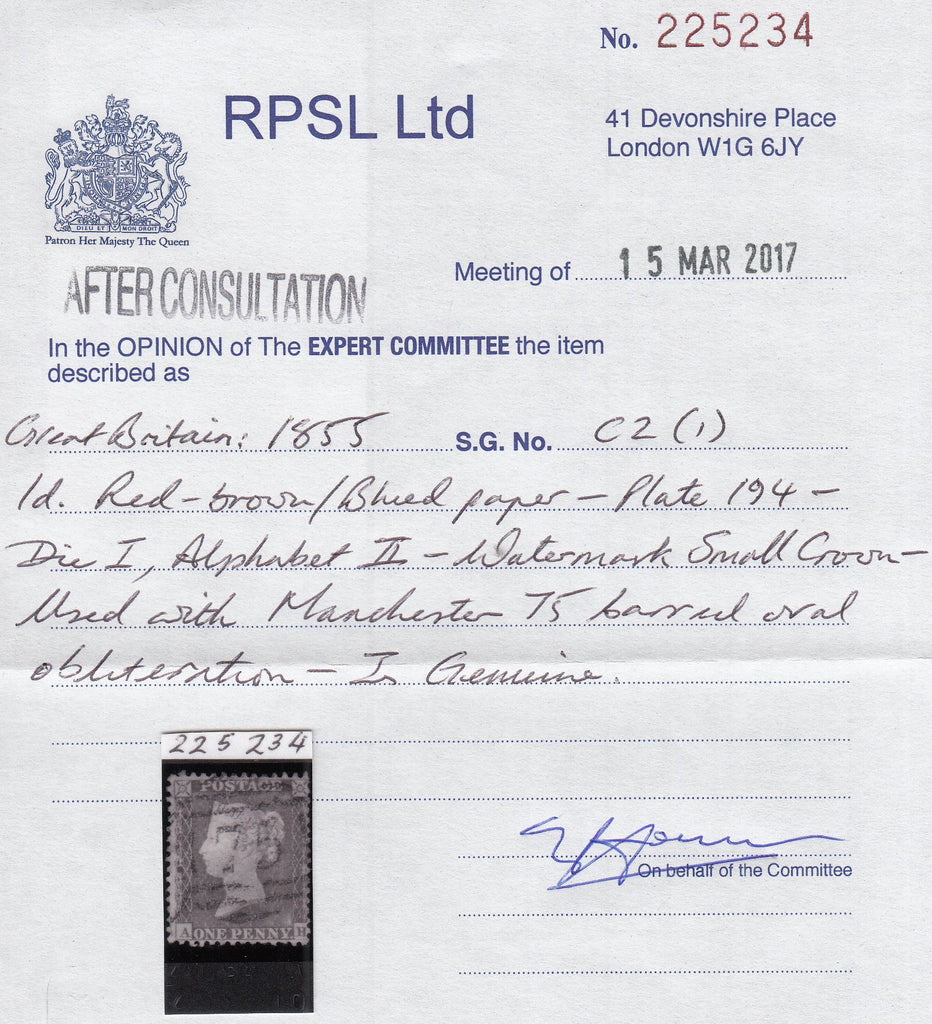 No. 225234
RPSL Ltd
41 Devonshire Place
London W1G 6JY
DIEU ET MON DROIT
Patron Her Majesty The Queen
AFTER CONSULTATION
Meeting of 15 MAR 2017
In the OPINION of The EXPERT COMMITTEE the item
described as
Great Britain: 1855 S.G. No. C2 (1)
1d. Red-brown/Blued paper - Plate 194 -
Die I, Alphabet II - Watermark Small Crown -
Used with Manchester 75 barred oval
obliteration - Is Genuine.
225 234
POSTAGE
A ONE PENNY H
On behalf of the Committee